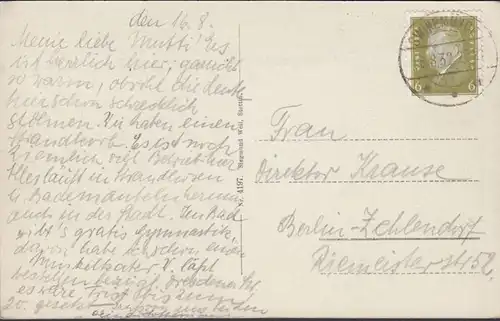 den 16. 8.
Meine liebe Mutti! Es
ist herrlich hier, gar nicht
so warm, obwohl die Leute
hier schon schrecklich
stöhnen. Wir haben einen
Strandkorb. Es ist noch
ziemlich viel Betrieb hier
Alles läuft in Strandhosen
u. Bademänteln herum
auch in der Stadt. Im Bad
gibt's gratis Gymnastik,
davon habe ich schon einen
Muskelkater
es wäre
20.
Nr. 4197. Siegmund Weil, Stettin.
6 6
Frau
Direktor Krause
Berlin-Zehlendorf
Riemeisterstr. 152